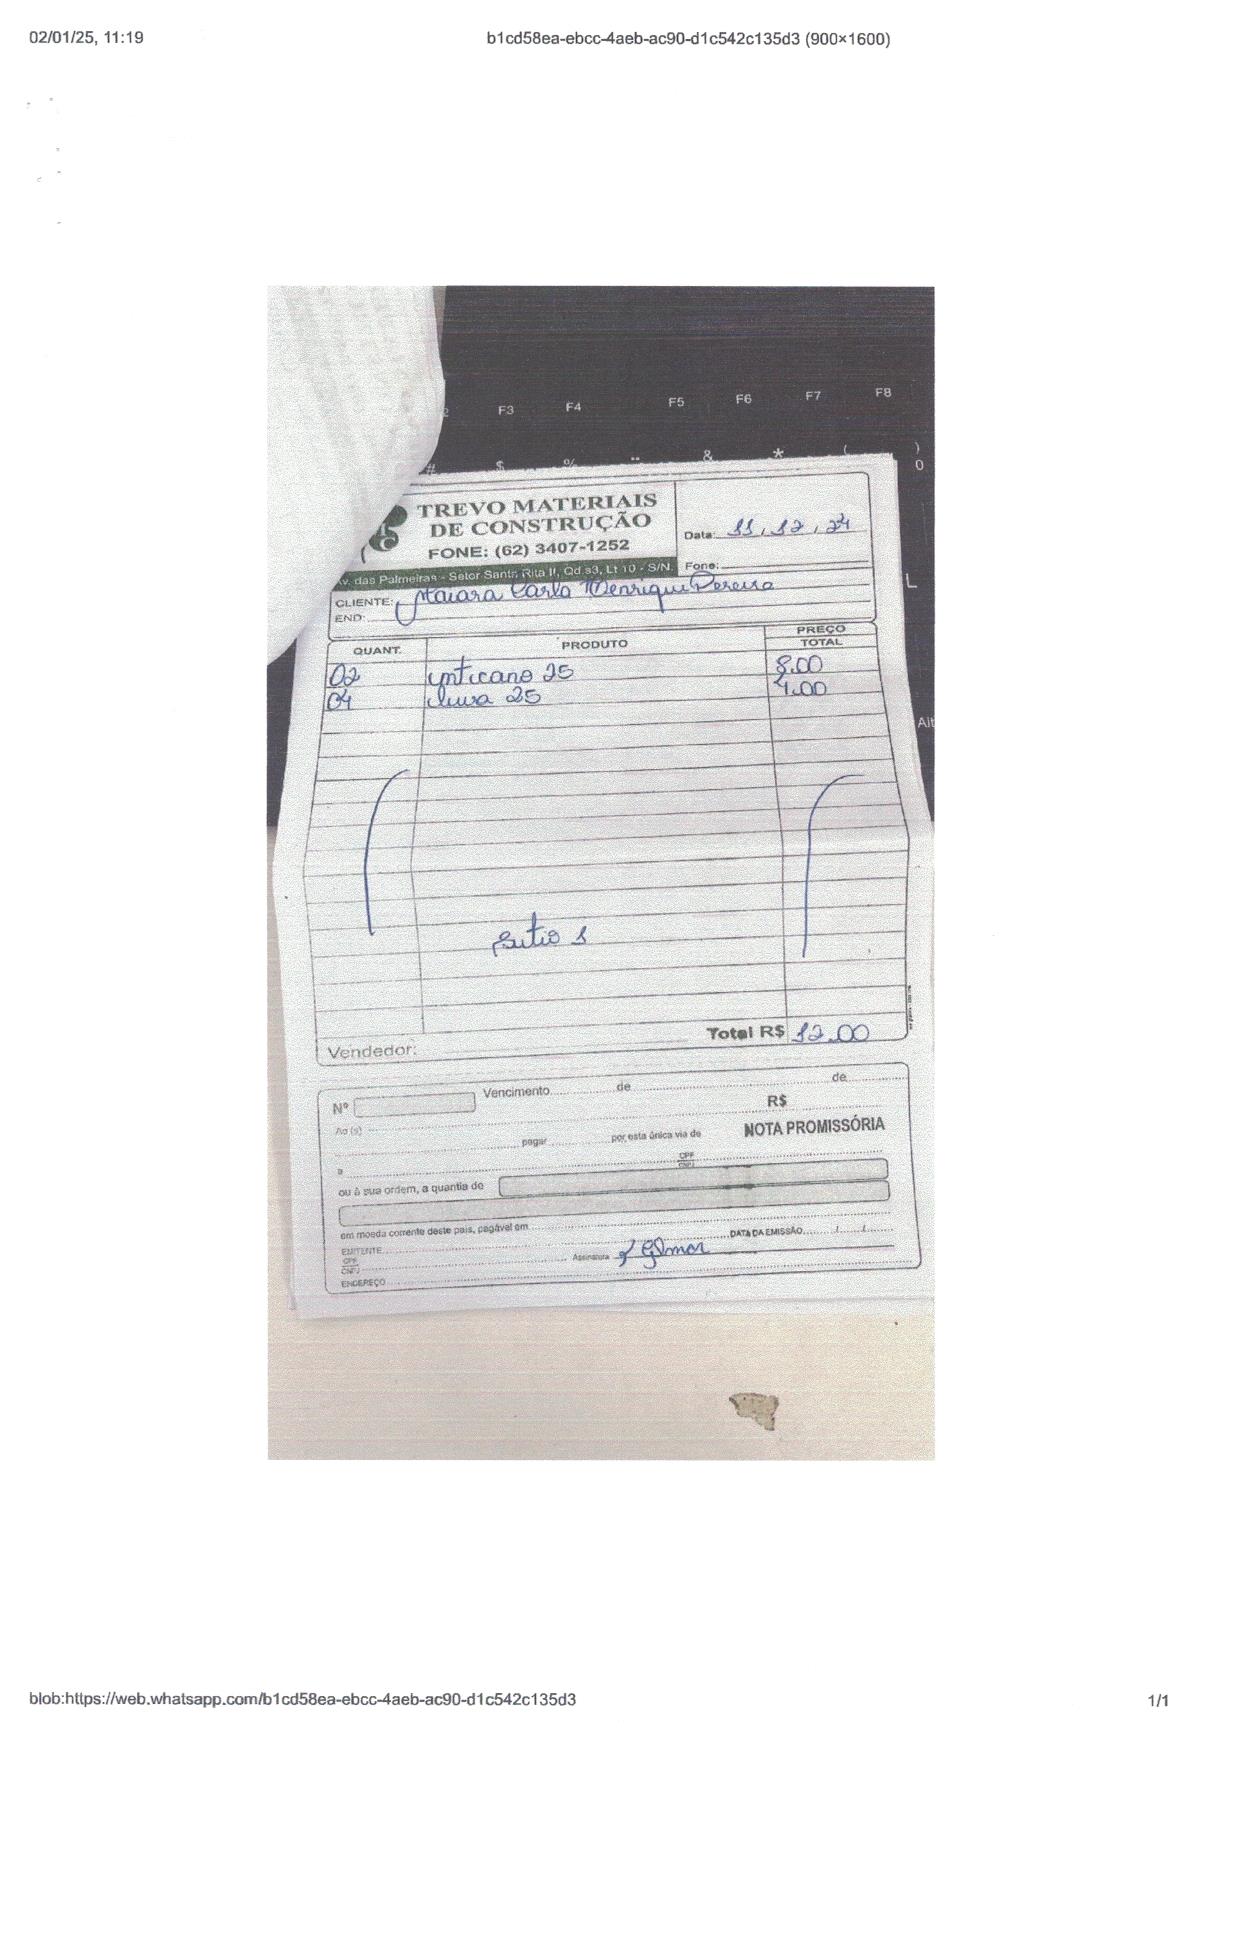 02/01/25, 11:19
b1cd58ea-ebcc-4aeb-ac90-d1c542c135d3 (900×1600)
F3 F4 F5 F6 F7 F8
# $ % ¨ & * ( )
0
TREVO MATERIAIS
DE CONSTRUÇÃO
FONE: (62) 3407-1252
Data: 11, 12, 24
Av. das Palmeiras - Setor Santa Rita II, Qd.s3, Lt 10 - S/N.
Fone:
L
CLIENTE: Maiara Carla Henrique Pereira
END:
QUANT. PRODUTO PREÇO TOTAL
02 25 8.00
04 luva 25 4.00
Alt
1
Total R$ 12.00
Vendedor:
Nº Vencimento de de
R$
Ao(s)
pagar por esta única via de NOTA PROMISSÓRIA
a CPF CNPJ
ou à sua ordem, a quantia de
em moeda corrente deste país, pagável em
EMITENTE DATA DA EMISSÃO / /
CPF CNPJ Assinatura Gilmar
ENDEREÇO
blob:https://web.whatsapp.com/b1cd58ea-ebcc-4aeb-ac90-d1c542c135d3
1/1